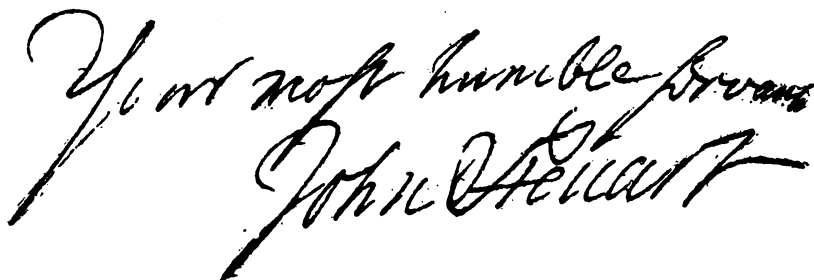 Your most humble servant
John Steuart